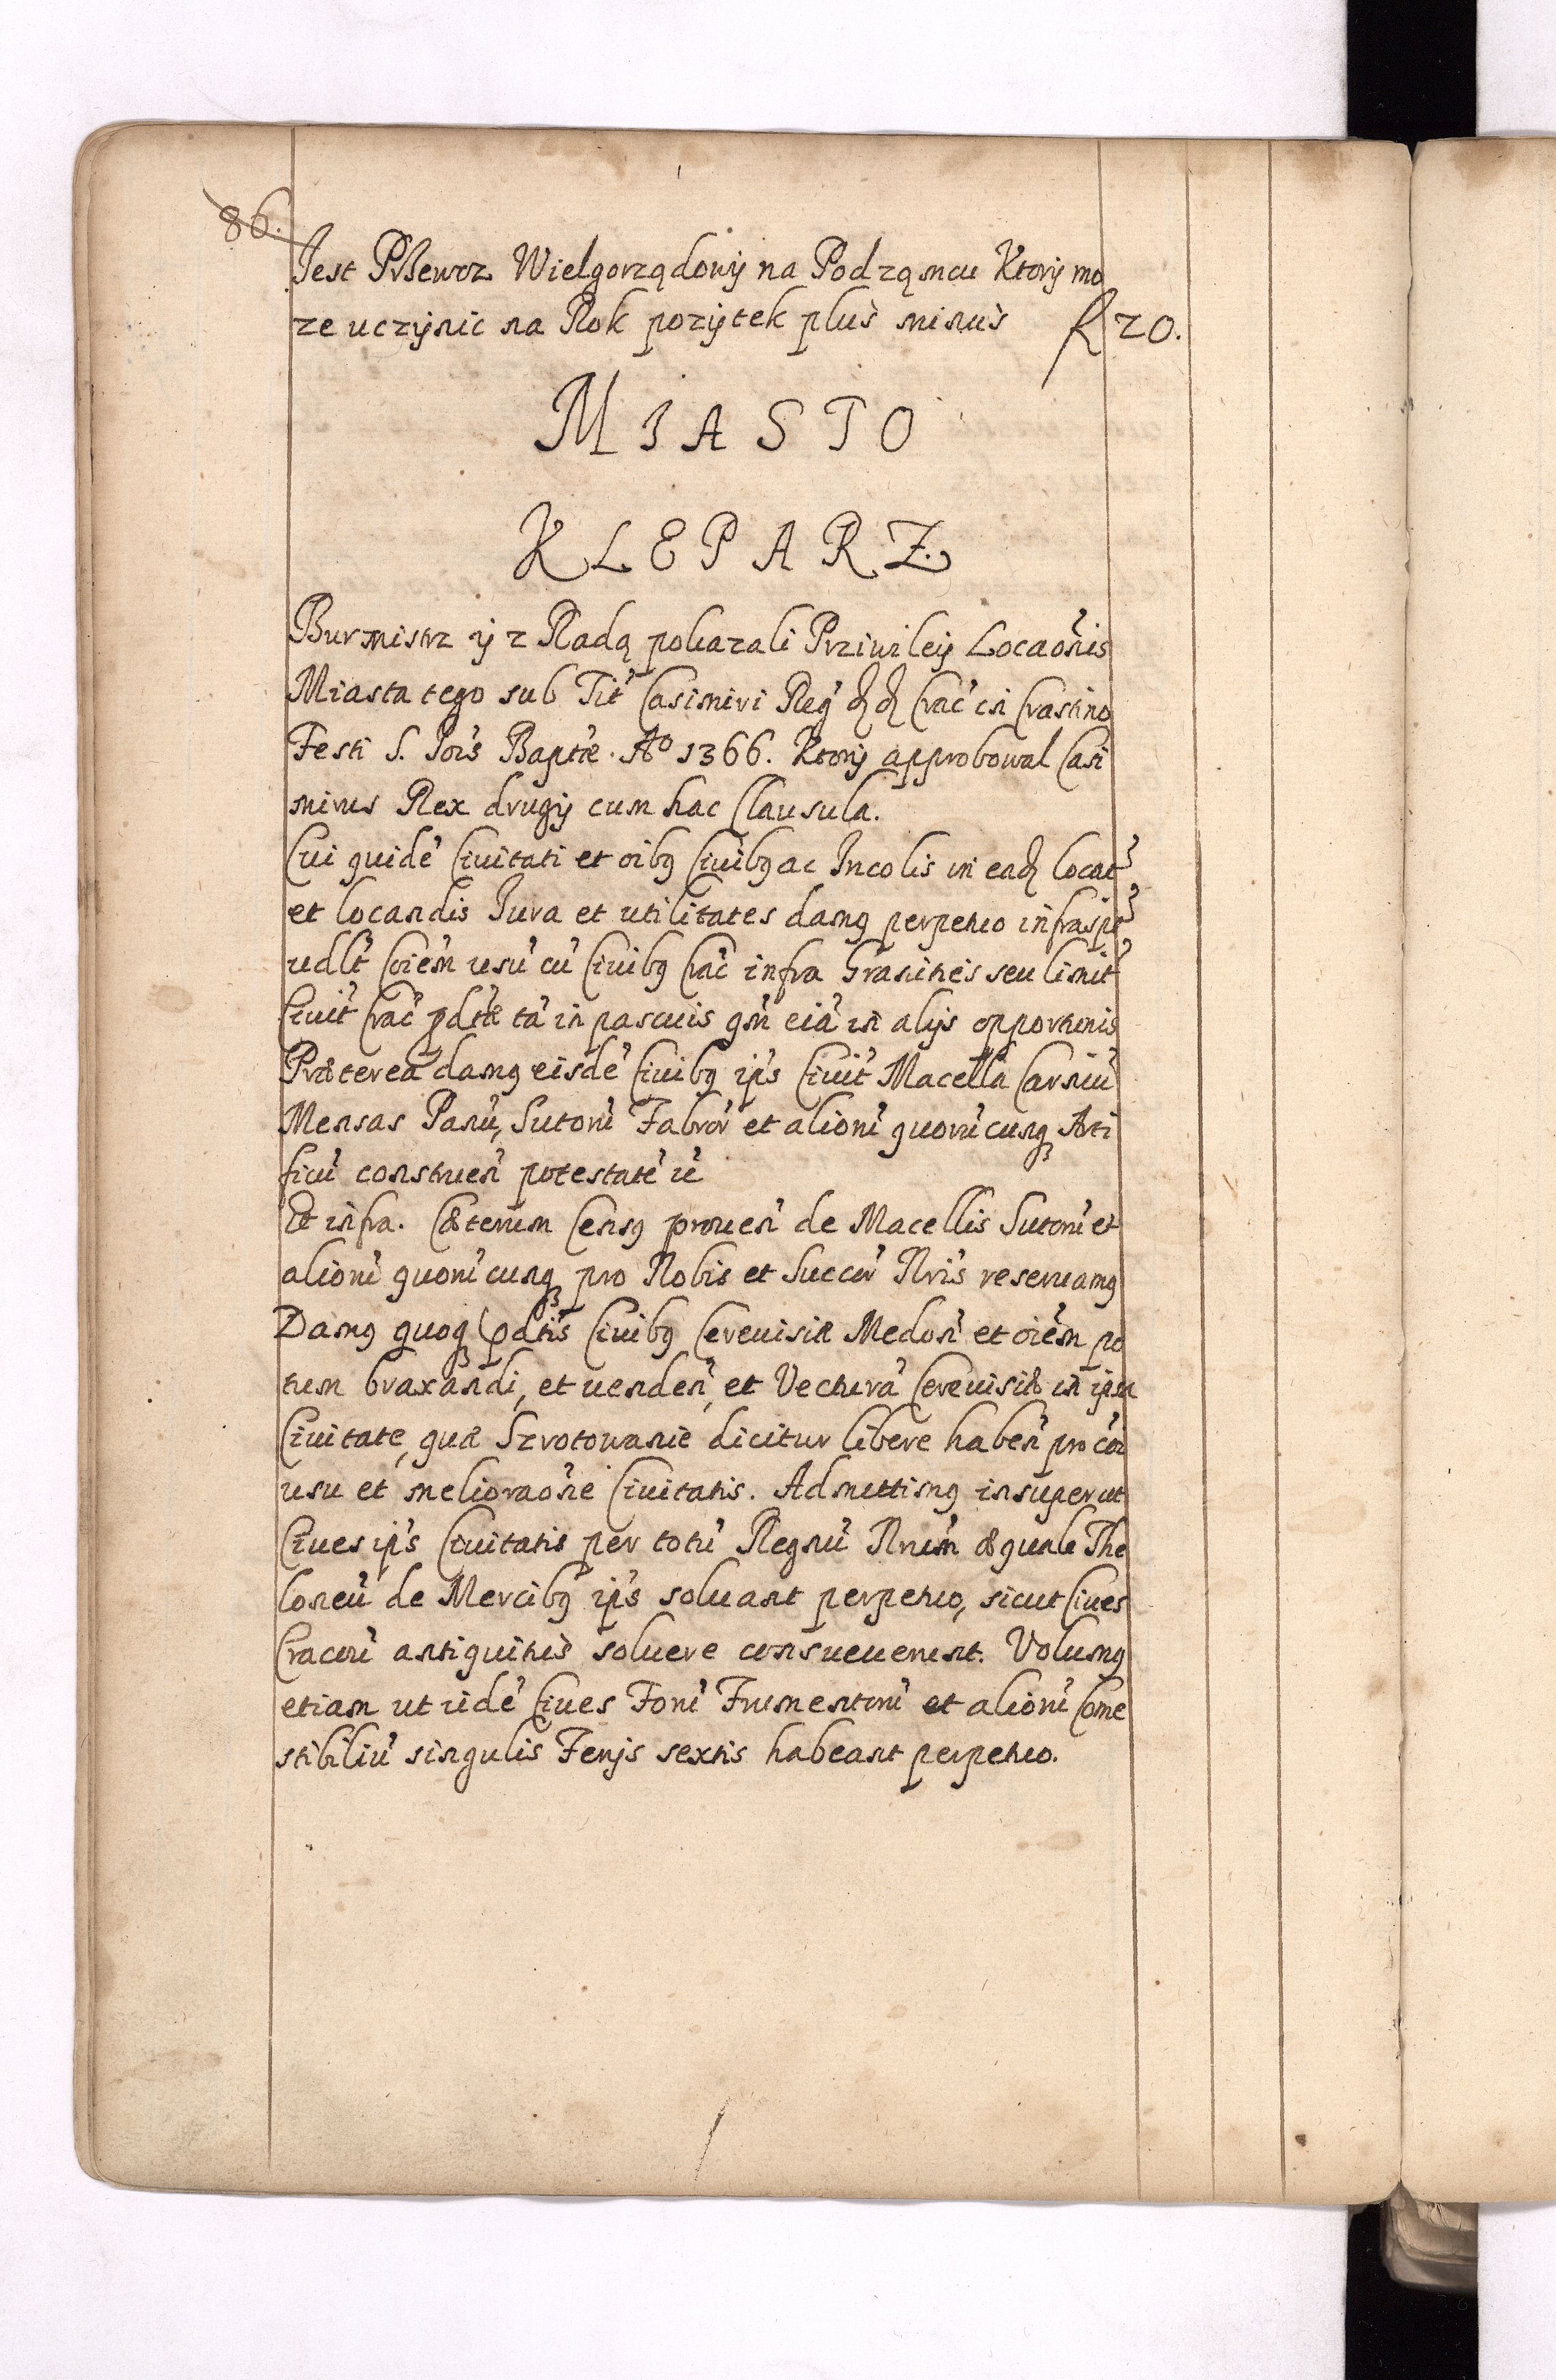 86.
Jest Wielgorządowy na Podzamcu Ktory mo
ze uczynic na Rok pozytek plus minus f 20.
MIASTO
KLEPARZ.
Burmistrz y z Radą pokazali Przivileÿ Locaõnis
Miasta tego sub Tit̃ Casimiri Reg̃ Crac̃ in Crastino
Festi S. Jois̃ Baptæ̃. Aº 1366. Ktory approbowal Casi
mirus Rex drugÿ cum hac Clausula.
Cui quidẽ Ciuitati et oĩbꝰ Ciuibꝰ ac Incolis in eadꝫ locat̃
et locandis Iura et utilitates damꝰ perpetuo infraspt̃
udlt̃ coiẽm usũ cũ Ciuibꝰ Crac̃ infra Granities seu limit̃
Ciuit̃ Crac̃ pdtæ̃ tã in pascuis qm̃ eiã in alijs opportunis
Præterea damꝰ eisdẽ Ciuibꝰ ip̃s Ciuit̃ Macella Carniũ
Mensas Panũ, Sutorũ Fabror̃ et aliorũ quorũcunqꝫ Arti
ficũ construen̄ potestatẽ
Et infra. Cæterum Censꝰ prouen̄ de Macellis Sutorũ et
aliorũ quorũcunqꝫ pro Nobis et Succor̃ Nris̃ reseruamꝰ
Damꝰ quoqꝫ pdtis̃ Ciuibꝰ Cereuisiæ Medon̄ et oiẽm po
tum braxandi, et uenden̄, et Vecturã Cereuisiæ in ipsa
Ciuitate, quæ Szrotowanie dicitur libere haben̄ pro coĩ
usu et melioraõne Ciuitatis. Admittimꝰ insuper ut
Ciues ip̃s Ciuitatis per totũ Regnũ Nrum̃ æquale The
loneũ de Mercibꝰ ip̃s soluant perpetuo, sicut Ciues
Cracoũ antiquitus soluere consueuerunt. Volumꝰ
etiam ut iidẽ Ciues Forũ Frumentorũ et aliorũ Come
stibiliũ singulis Ferijs sextis habeant perpetuo.